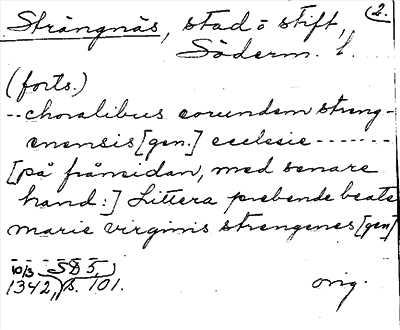 2.
Strängnäs, stad o stift,
Söderm. l.
(forts.)
-- choralibus eorundem streng-
enensis [gen.] ecclesie -------
[på frånsidan, med senare
hand:] Littera prebende beate
marie virginis strengenes [gen]
10/3 SD 5,
1342, s. 101. orig.